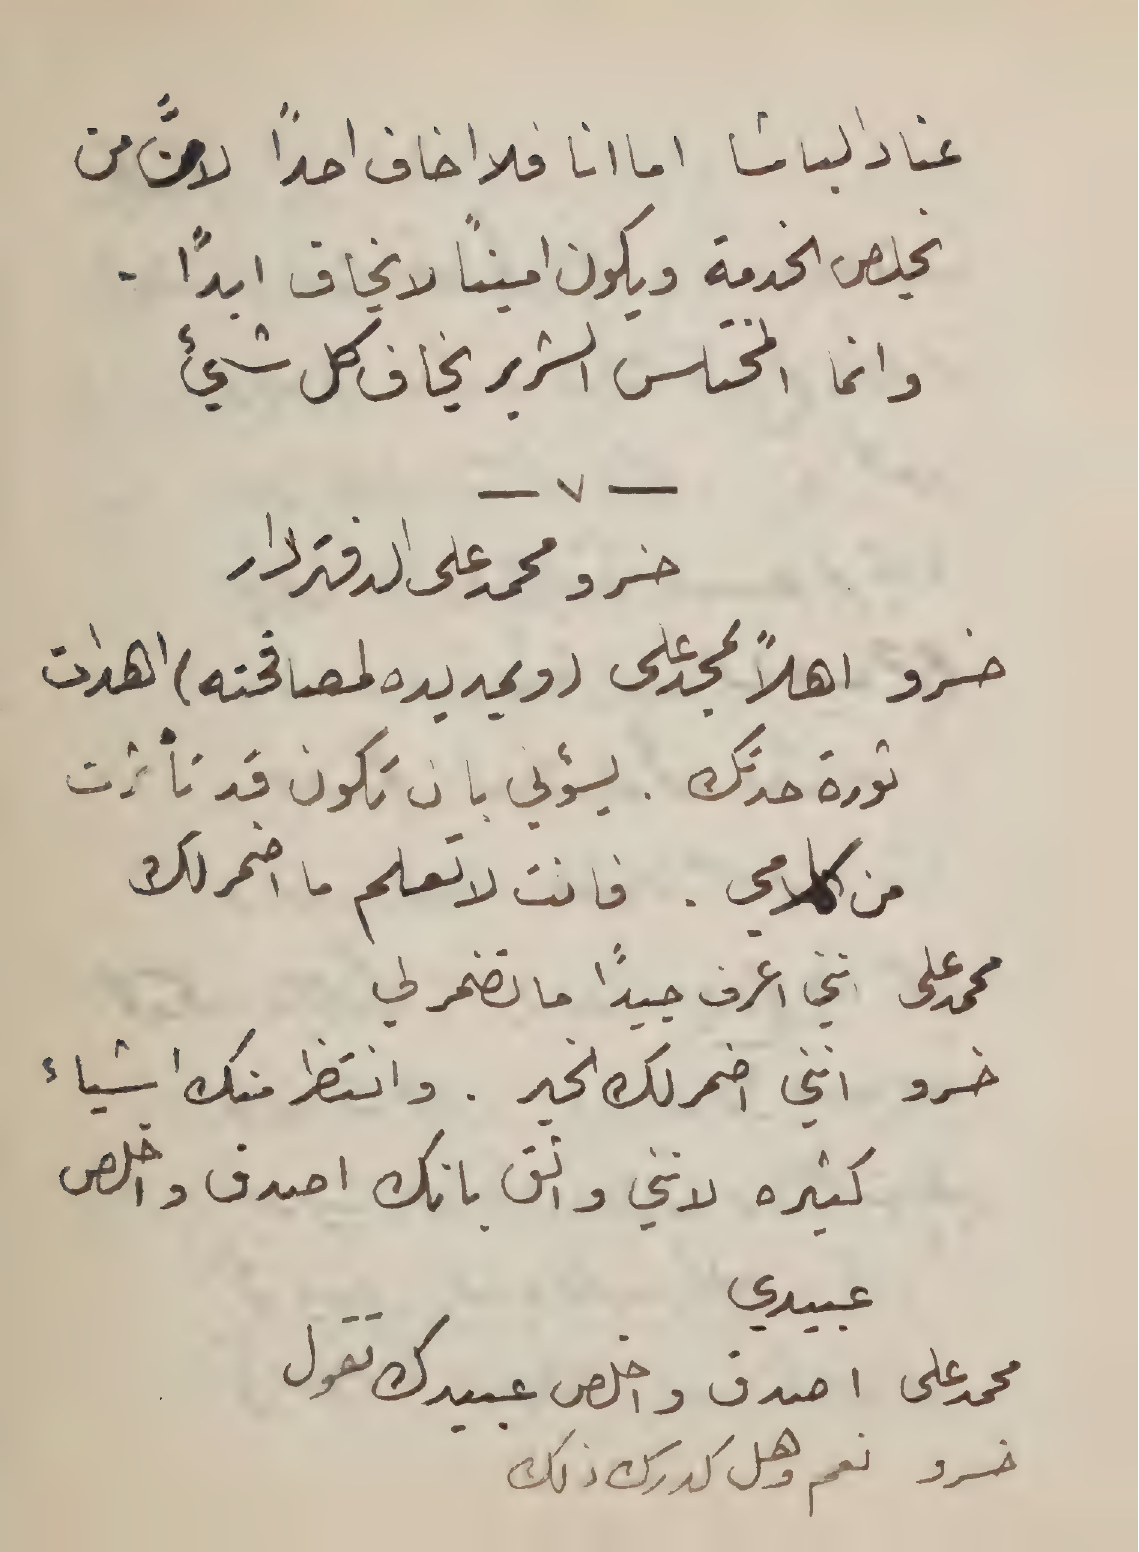 عناد الباشا اما انا فلا اخاف احداً لانَّ من
يخلص الخدمة ويكون اميناً لا يخاف ابداً -
وانما المختلس الشرير يخاف كل شيئ
— ٧ —
خسرو محمد على الدفتردار
خسرو اهلاً بمحمد على (ويمد يده لمصافحته) اهدات
ثورة حدتك . ليسؤني بان تكون قد تأثرت
من كلامي . فانت لا تعلم ما اضمر لك
محمد على انني اعرف جيداً ما تضمر لي
خسرو انني اضمر لك الخير . وانتظر منك اشياء
كثيره لانني واثق بانك اصدق واخلص
عبيدي
محمد على اصدق واخلص عبيدك تقول
خسرو نعم وهل كدرك ذلك